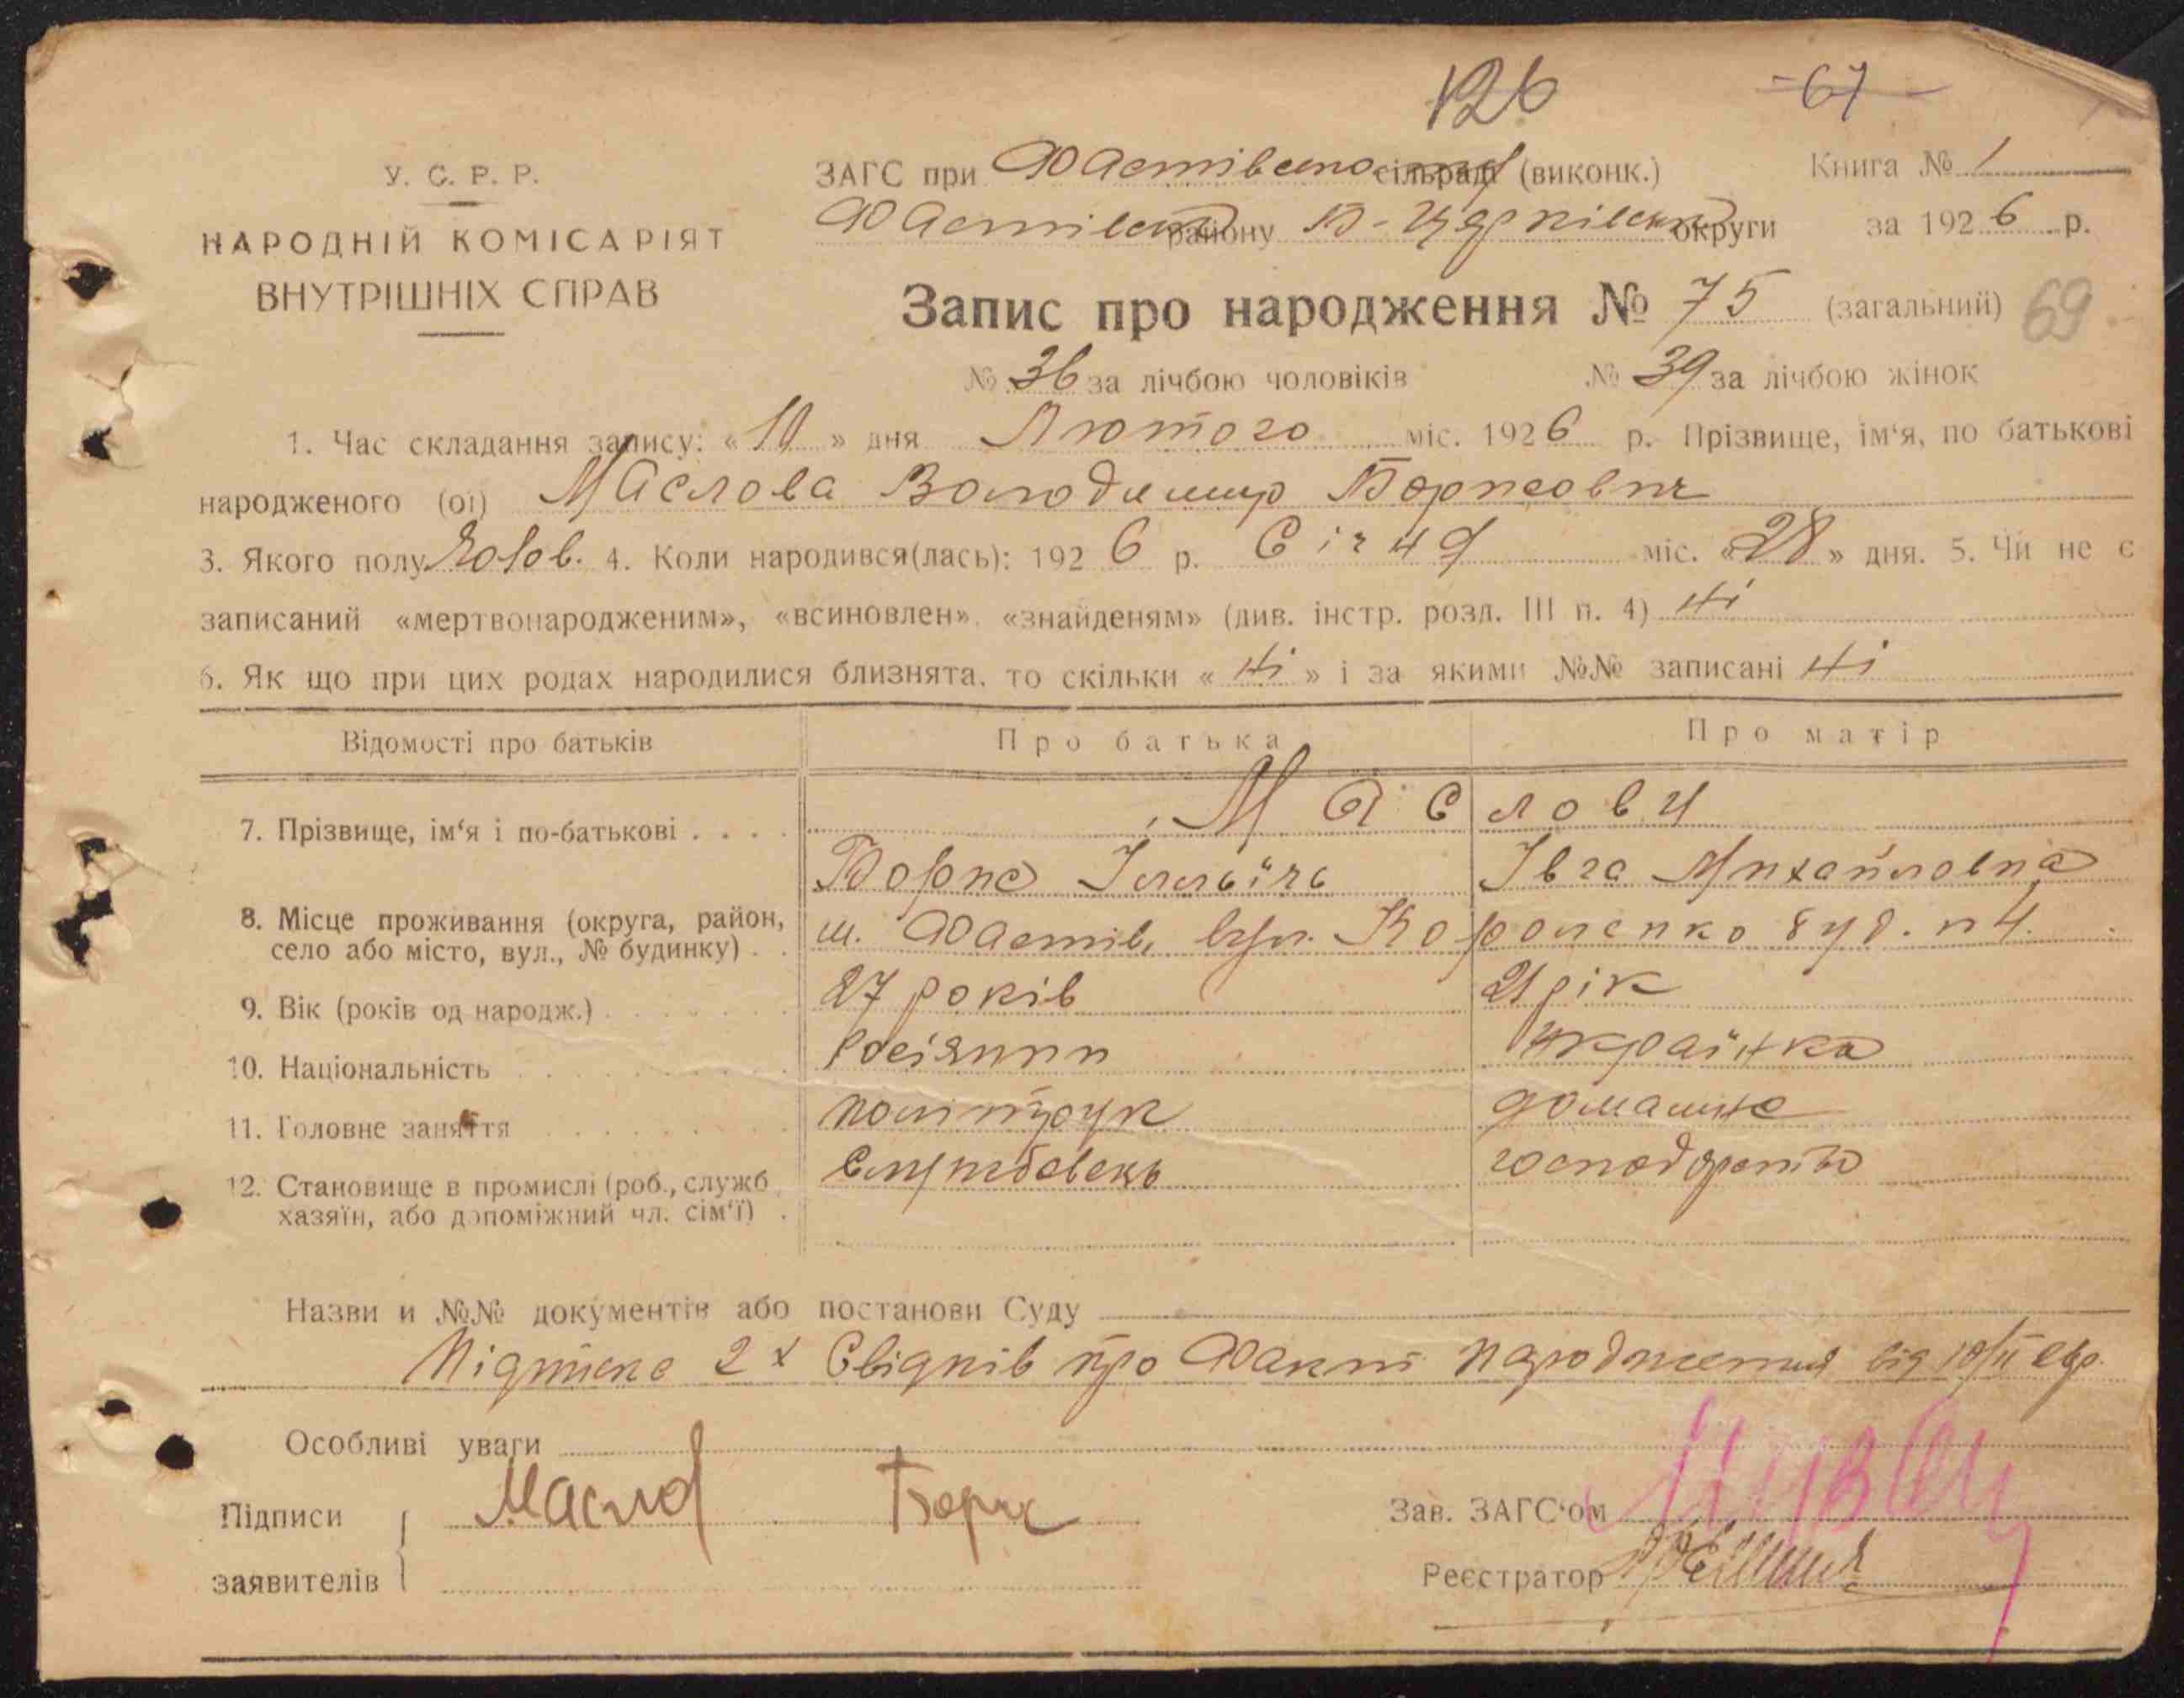 126 -67-
У. С. Р. Р.
НАРОДНІЙ КОМІСАРІЯТ
ВНУТРІШНІХ СПРАВ
ЗАГС при Фастівсько сільраді (виконк.) Книга № 1
Фастівськ району Б-Церківськ округи за 1926 р.
Запис про народження № 75 (загальний) 69
№ 36 за лічбою чоловіків № 39 за лічбою жінок
1. Час складання запису: «10» дня Лютого міс. 1926 р. Прізвище, ім'я, по батькові
народженого (ої) Маслова Володимир Борисович
3. Якого полу Чолов. 4. Коли народився(лась): 1926 р. Січня міс. «28» дня. 5. Чи не є
записаний «мертвонародженим», «всиновлен», «знайденям» (див. інстр. розд. III п. 4) ні
6. Як що при цих родах народилися близнята, то скільки «ні» і за якими №№ записані ні
Відомості про батьків Про батька Про матір
7. Прізвище, ім'я і по-батькові . . . . Маслови
Борис Ілльїчь Івга Михайловна
8. Місце проживання (округа, район,
село або місто, вул., № будинку) . . м. Фастів, вул. Короленко буд. n 4.
9. Вік (років од народж.) 27 років 21 рік
10. Національність росіянин українка
11. Головне заняття політрук домашнє
12. Становище в промислі (роб., служб
хазяїн, або допоміжний чл. сім'ї) . Службовець господарство
Назви и №№ документів або постанови Суду
Підписка 2х Свідків про Факт народження від 10/II
Особливі уваги
Підписи
заявителів Маслов Борис
Зав. ЗАГС'ом
Реєстратор